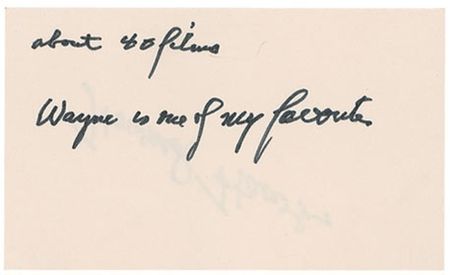 about 80 films
Wayne is one of my favorites